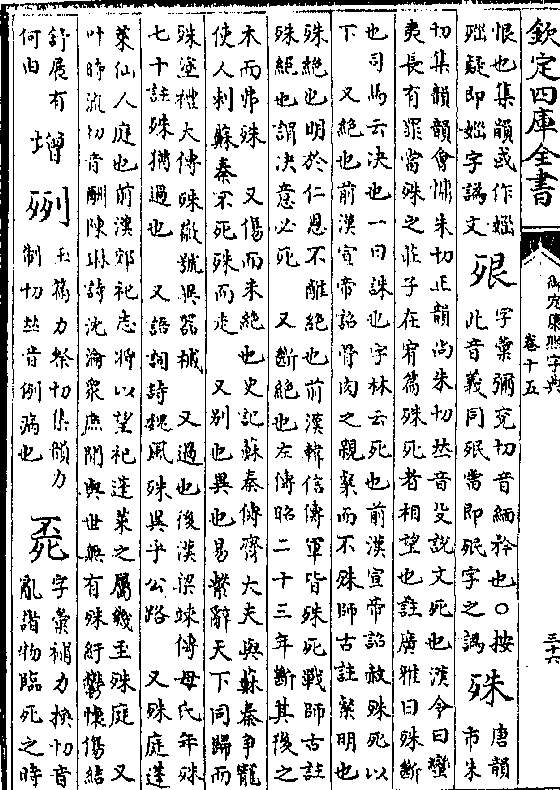 欽定四庫全書
御定康熙字典
卷十五
三十六
恨也集韻或作
疑即字譌文
字彙彌兗切音緬矜也○按
此音義同當即字之譌
殊
唐韻
市朱
切集韻韻會慵朱切正韻尚朱切𠀤音殳說文死也漢令曰蠻
夷長有罪當殊之莊子在宥篇殊死者相望也註廣雅曰殊斷
也司馬云决也一曰誅也字林云死也前漢宣帝詔赦殊死以
下 又絶也前漢宣帝詔骨肉之親粲而不殊師古註粲明也
殊絶也明於仁恩不離絶也前漢韓信傳軍皆殊死戰師古註
殊絶也謂决意必死 又斷絶也左傳昭二十三年斷其後之
木而弗殊 又傷而未絶也史記蘇秦傳齊大夫與蘇秦爭寵
使人刺蘇秦不死殊而走 又别也異也易繫辭天下同歸而
殊塗禮大傳殊徽號異器械 又過也後漢梁竦傳母氏年殊
七十註殊猶過也 又語詞詩魏風殊異乎公路 又殊庭蓬
萊仙人庭也前漢郊祀志將以望祀蓬萊之屬幾至殊庭 又
叶時流切音酬陳琳詩沈淪衆庶間與世無有殊紆鬱懷傷結
舒展有
何由
增
玉篇力祭切集韻力
制切𠀤音例病也
字彙補力換切音
亂諧物臨死之時